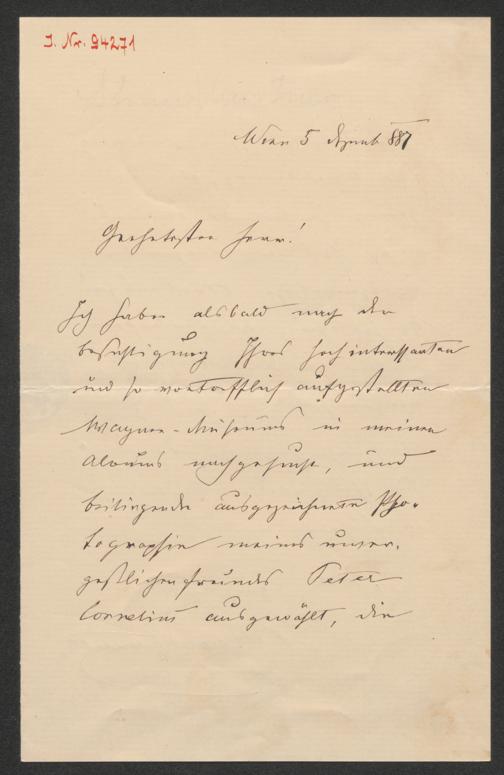 I. Nr. 94271
Wien 5 Dezemb 887
Geehrtester Herr!
Ich habe alsbald nach der
besichtigung Ihres hochinteressanten
und so vortrefflich aufgestellten
Wagner-Museums in meinen
Albums nachgesucht, und
beiliegende ausgezeichnete Pho-
tographie meines unver-
geßlichen freundes Peter
Cornelius ausgewählt, die